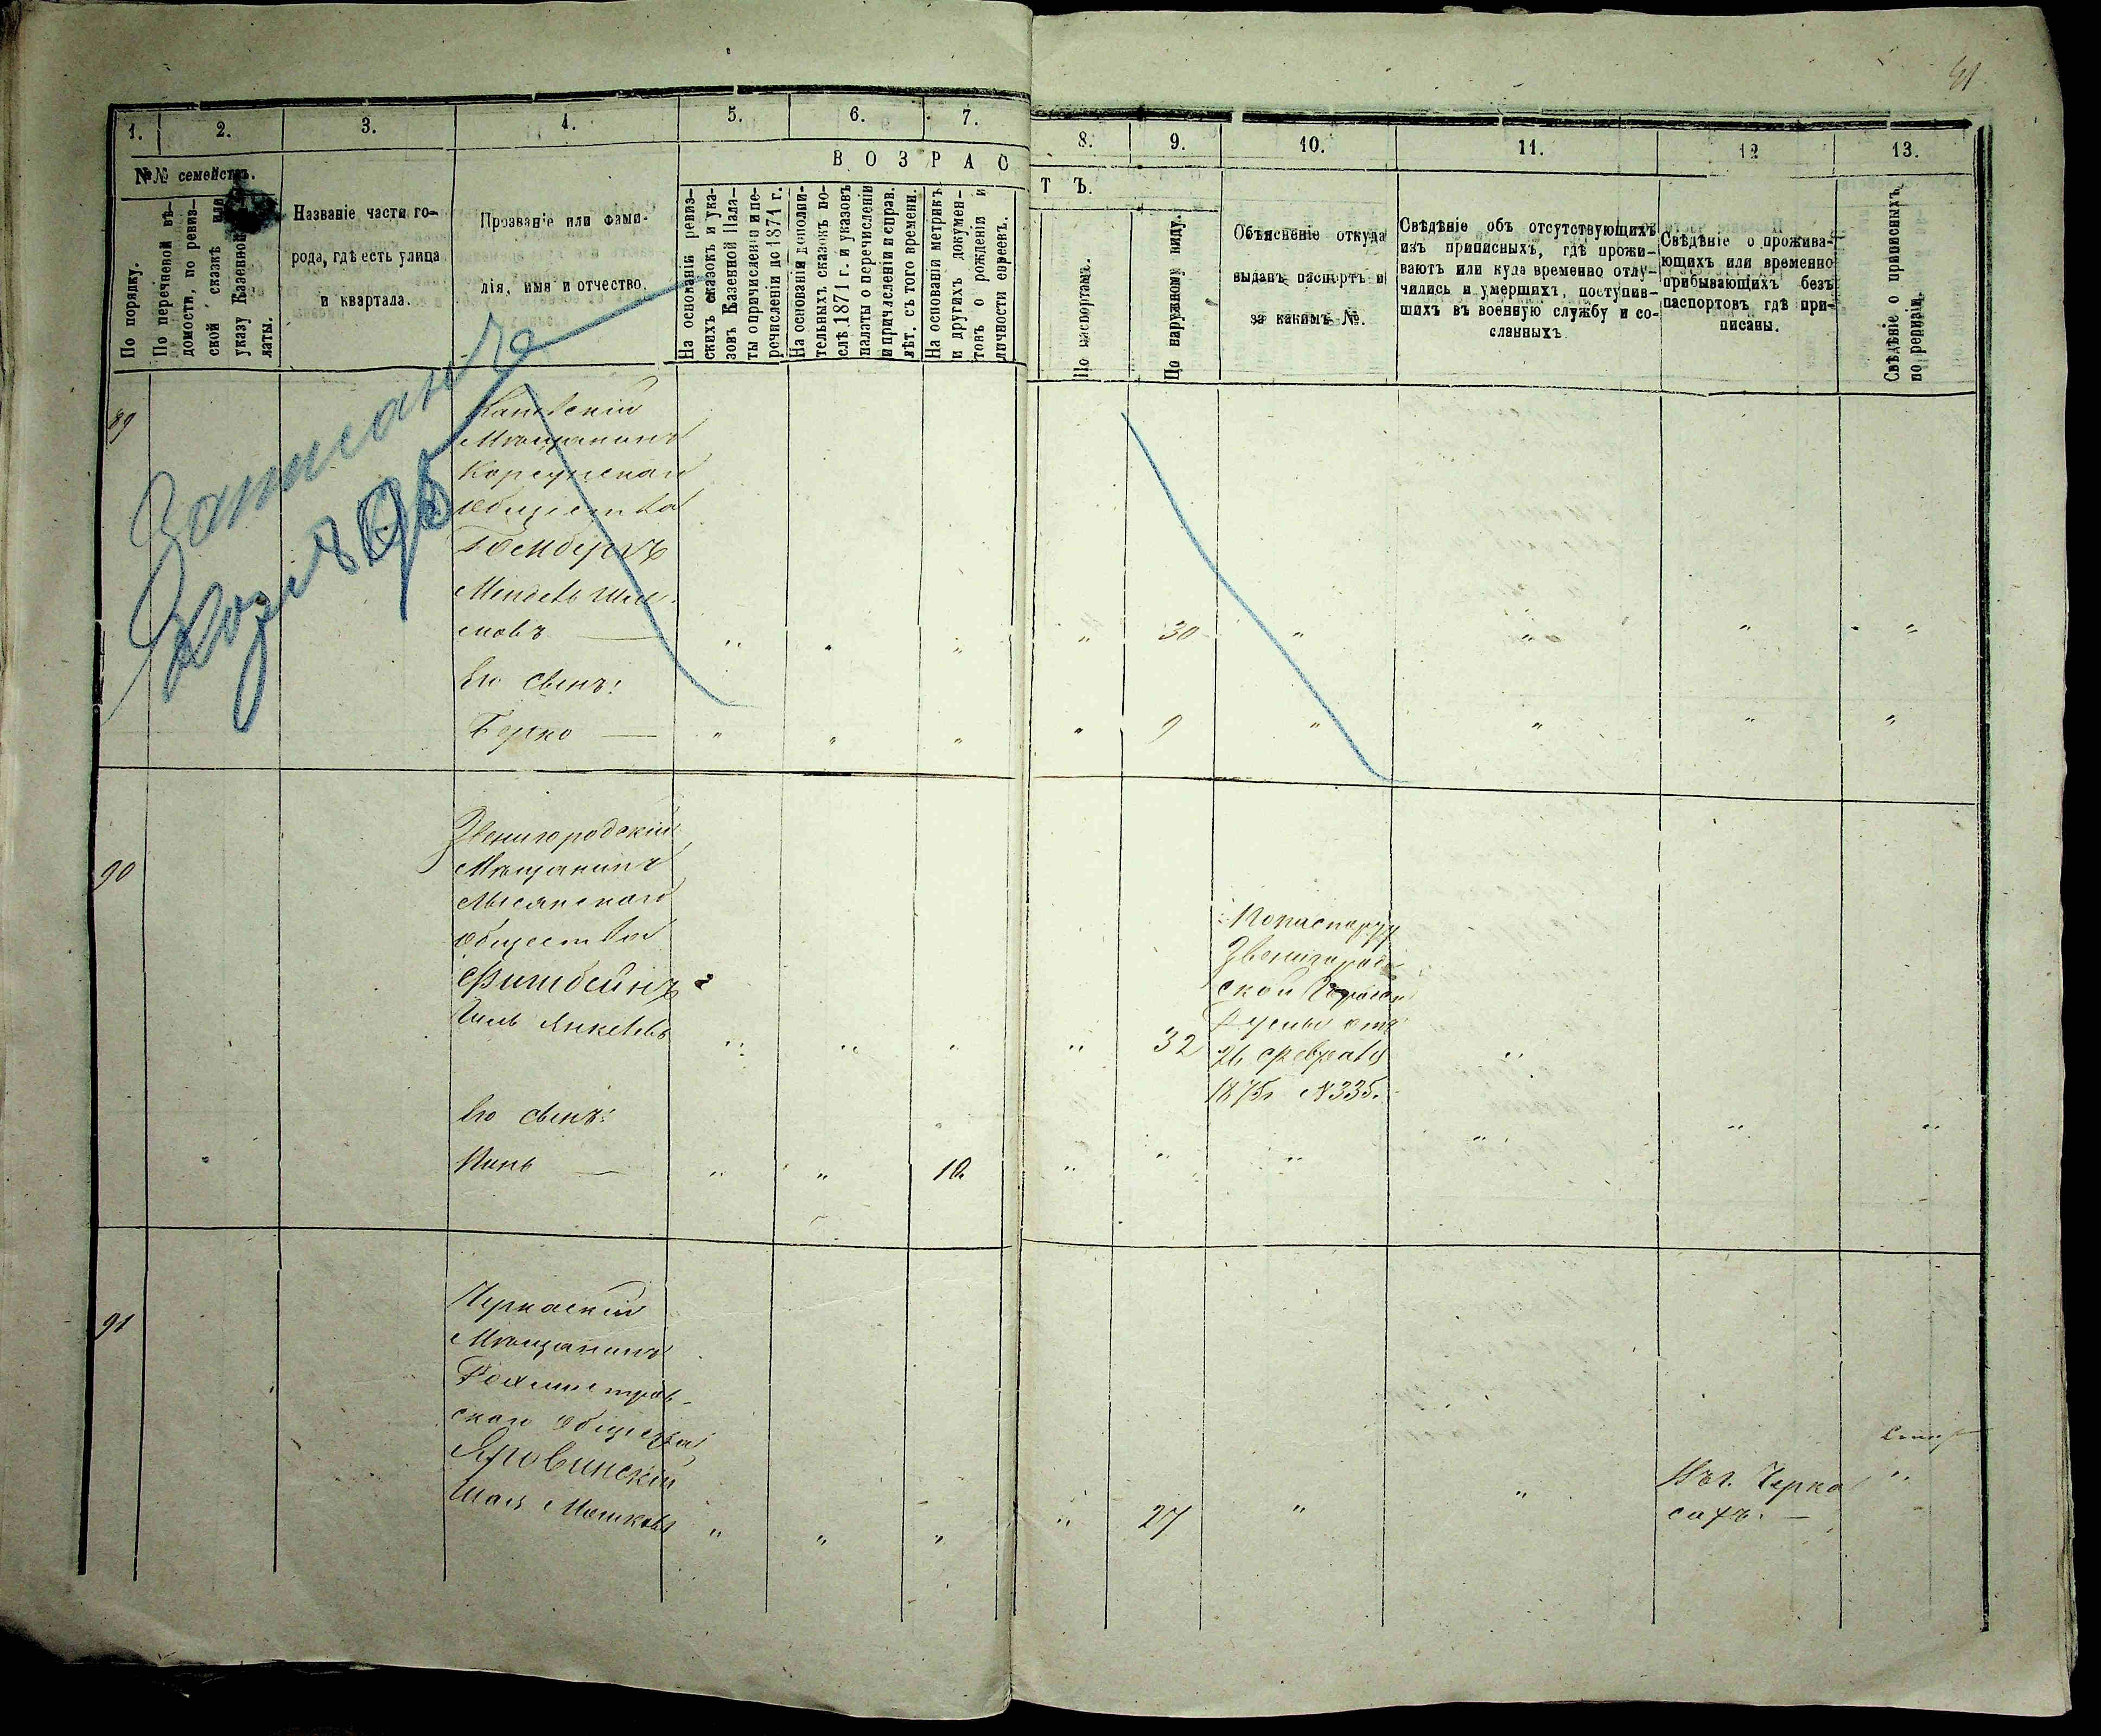 91
1.
2.
3.
4.
5.
6.
7.
8.
9.
10.
11.
12
13.
№№ семействъ.
В О З Р А С Т Ъ.
По порядку.
По перечневой вѣ-
домости, по ревиз-
ской сказкѣ или
указу Казенной
латы.
Названіе части го-
рода, гдѣ есть улица
и квартала.
Прозваніе или Фами-
лія, имя и отчество.
На основаніи ревиз-
скихъ сказокъ и ука-
зовъ Казенной Пала-
ты о причисленіи и пе-
речисленіи до 1871 г.
На основаніи дополни-
тельныхъ сказокъ по-
слѣ 1871 г. и указовъ
палаты о перечисленіи
и причисленіи и справ.
лѣт. съ того времени.
На основаніи метрикъ
и другихъ докумен-
товъ о рожденіи и
личности евреевъ.
По паспортамъ.
По наружному виду.
Объясненіе откуда
выданъ паспортъ и
за какимъ №.
Свѣдѣніе объ отсутствующихъ
изъ приписныхъ, гдѣ прожи-
ваютъ или куда временно отлу-
чились и умершихъ, поступив-
шихъ въ военную службу и со-
сланныхъ
Свѣдѣніе о прожива-
ющихъ или временно
прибывающихъ безъ
паспортовъ гдѣ при-
писаны.
Свѣдѣніе о приписныхъ
по ревизіи.
Записанъ
89
Каневскій
Мѣщанинъ
Корсунскаго
Общества
Мендель
30
Его сынъ:
Берко —
9
90
Звенигородскій
Мѣщанинъ
Лысянскаго
Общества
Фишбейнъ
Янкелевъ
32
По паспорту
Звенигород-
ской Городск
Думы отъ
26 февраля
1875г №335.
Его сынъ:
—
10
91
Черкаскій
Мѣщанинъ
Рахмистров-
скаго Общества
Яровинскій
Мошковъ
27
Въ г. Черка
сахъ. —